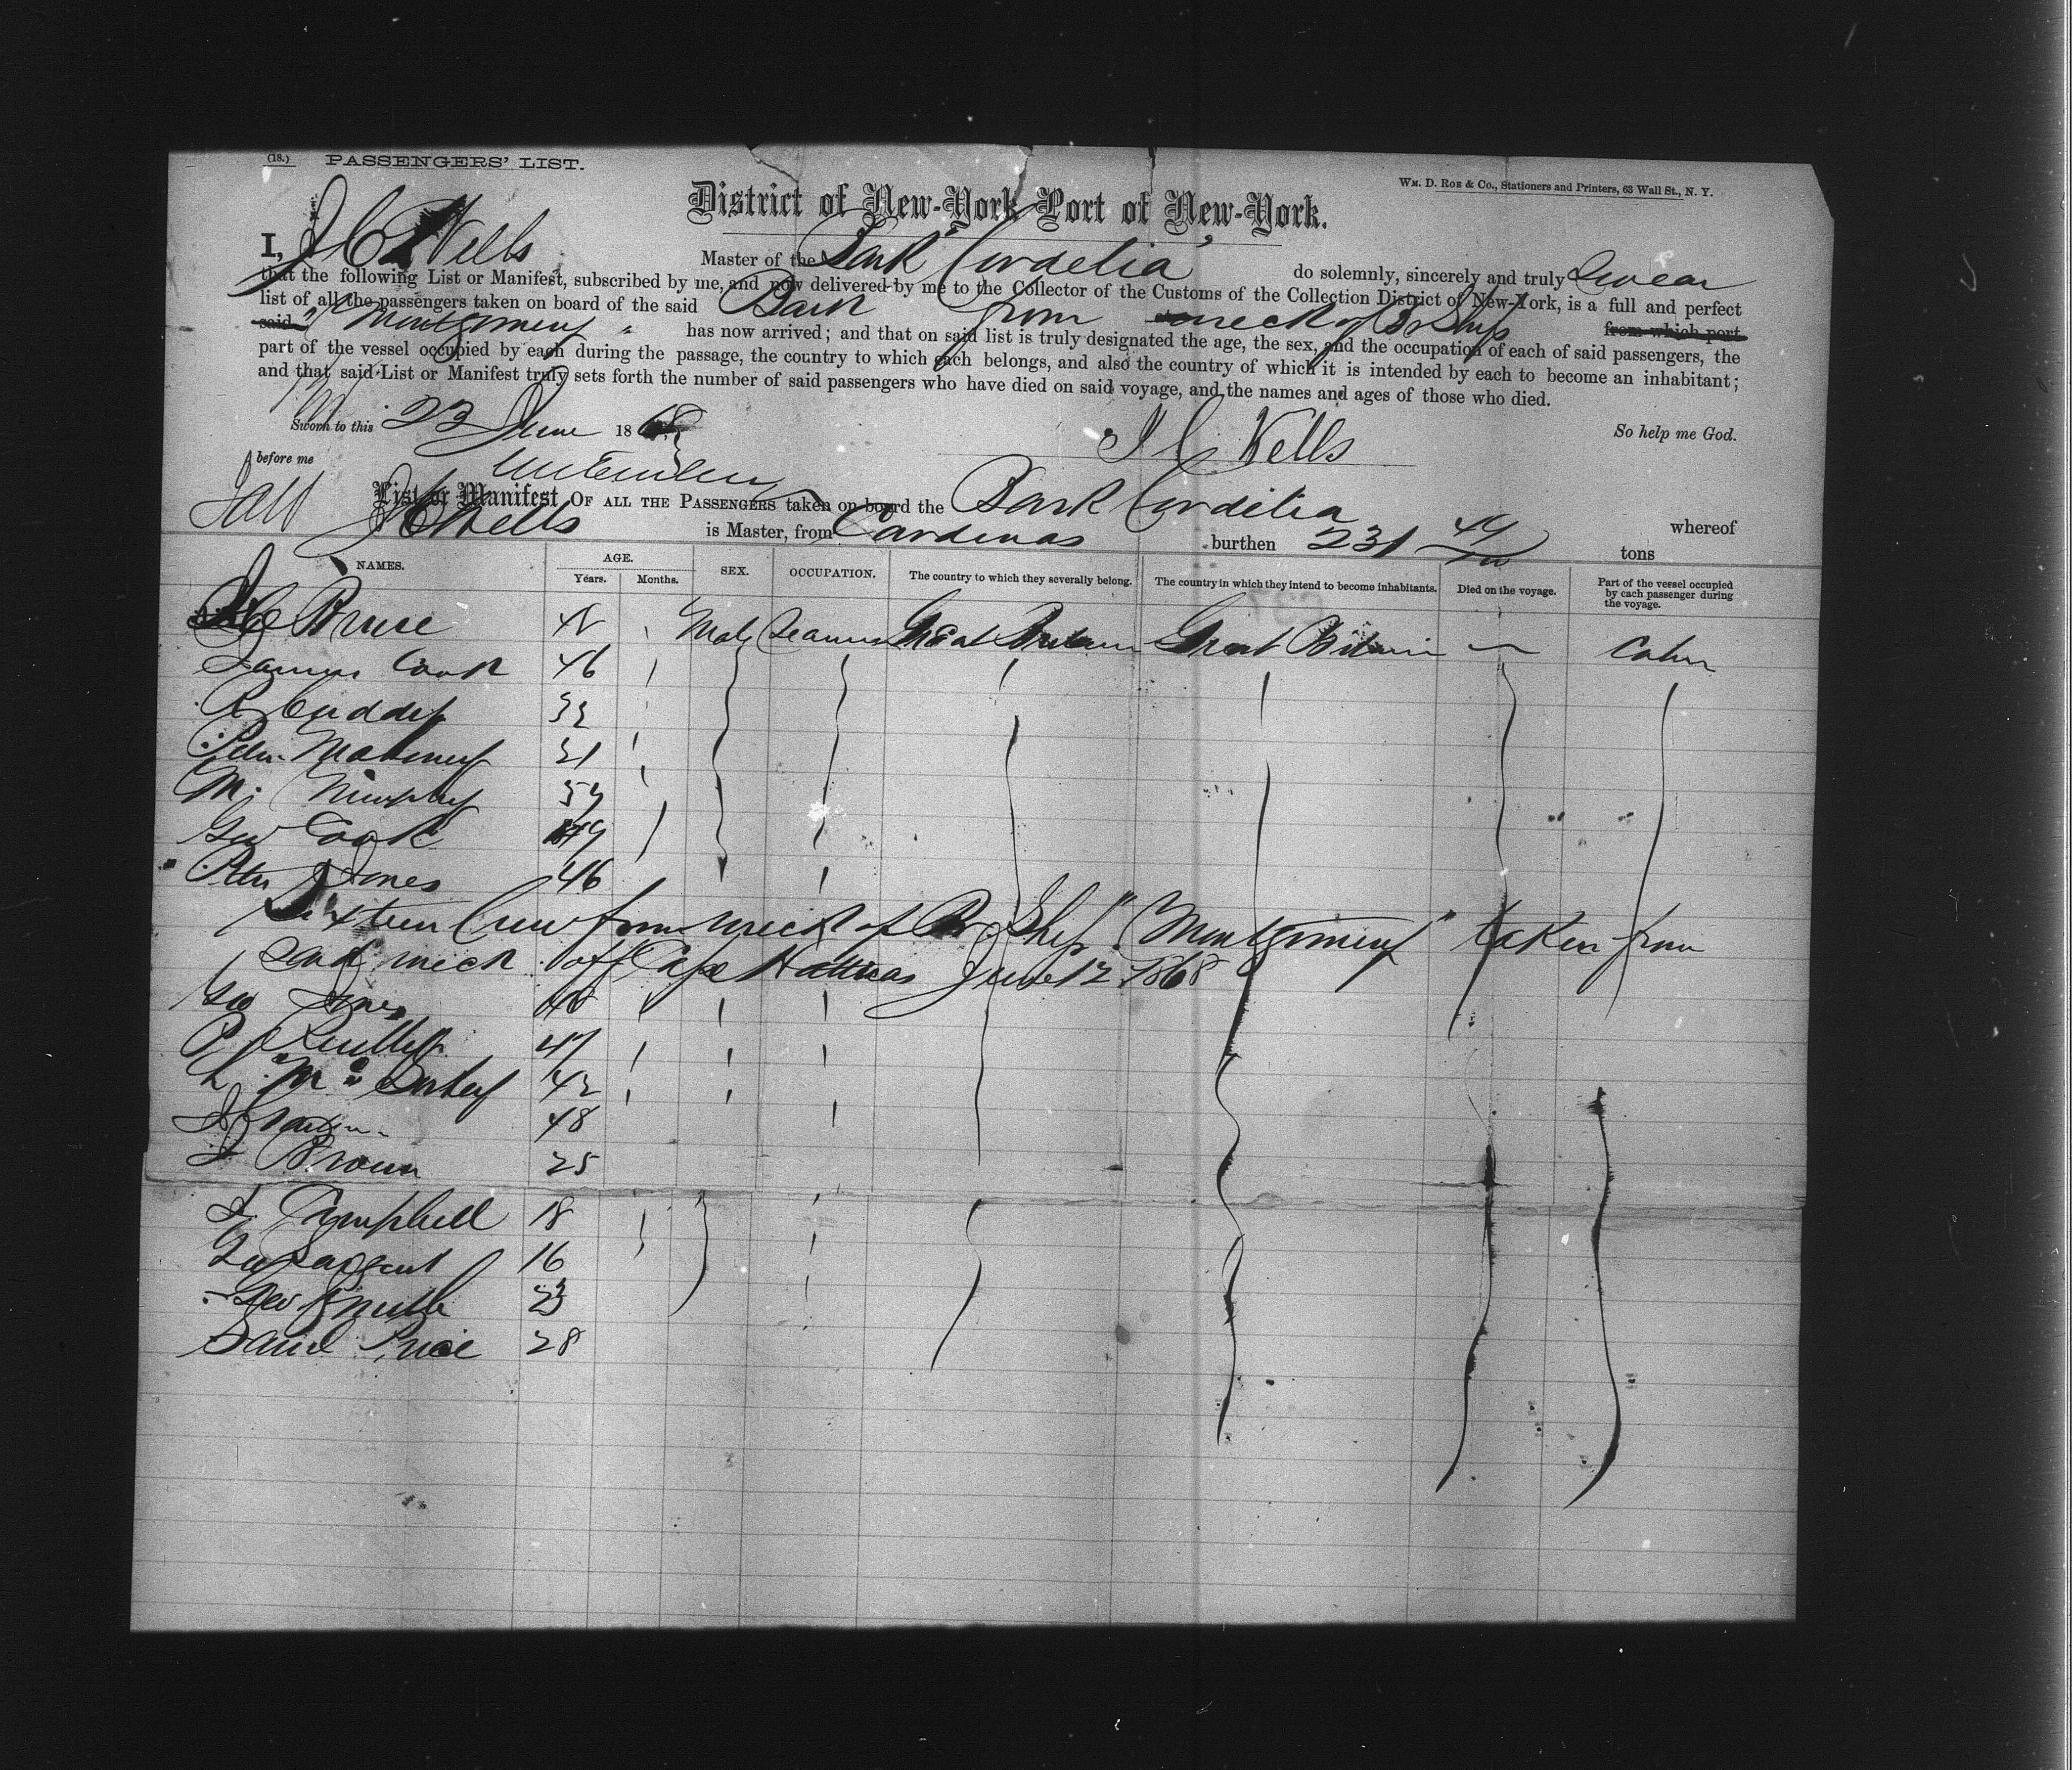 (18.) PASSENGERS' LIST.
Wm. D. Roe & Co., Stationers and Printers, 63 Wall St., N. Y.
District of New-York Port of New-York.
I, J C Wells Master of the Bark "Cordelia" do solemnly, sincerely and truly Swear
that the following List or Manifest, subscribed by me, and now delivered by me to the Collector of the Customs of the Collection District of New-York, is a full and perfect
list of all the passengers taken on board of the said Bark from wreck of Br Ship from which port
said "Montgomery" has now arrived; and that on said list is truly designated the age, the sex, and the occupation of each of said passengers, the
part of the vessel occupied by each during the passage, the country to which each belongs, and also the country of which it is intended by each to become an inhabitant;
and that said List or Manifest truly sets forth the number of said passengers who have died on said voyage, and the names and ages of those who died.
Sworn to this 23 June 1868 So help me God.
before me J C Wells
List or Manifest OF ALL THE PASSENGERS taken on board the Bark Cordelia whereof
J C Wells is Master, from Cardenas burthen 231 44/100 tons
NAMES. AGE. Years. Months. SEX. OCCUPATION. The country to which they severally belong. The country in which they intend to become inhabitants. Died on the voyage. Part of the vessel occupied by each passenger during the voyage.
Bruce Male Seaman Great Britain Great Britain
James Cook 46
R Cuddy 32
Peter Mahoney 31
M. Murphy
Geo Cook 49
Peter Jones 46
Sixteen Crew from wreck of Br Ship "Montgomery" taken from
said wreck off Cape Hatteras June 12 1868
Geo Jones
P 47
42
48
J Brown 25
J Campbell 18
Geo Sargent 16
Geo Smith 23
David Price 28